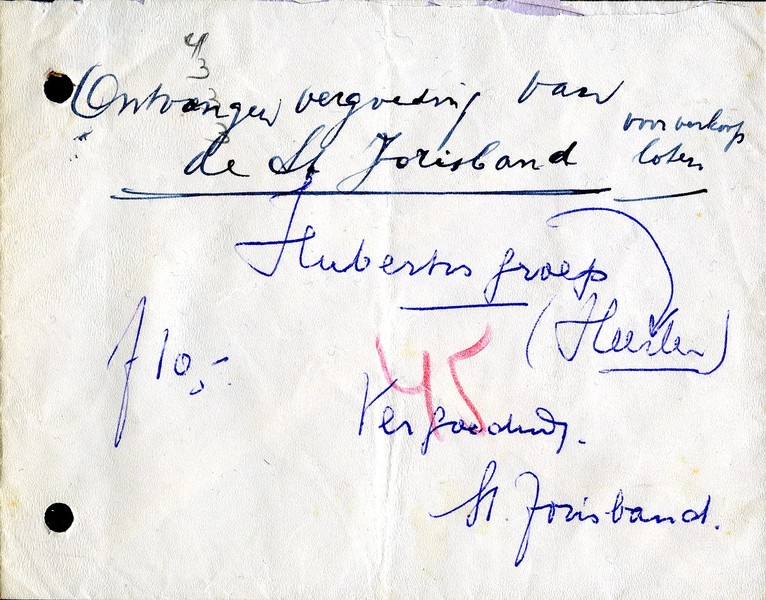 4
3
Ontvangen vergoeding van
de St Jorisband
voor verkoop
loten
Hubertus groep
(Heerlen)
f 10,-
45
Vergoeding.
St. Jorisband.